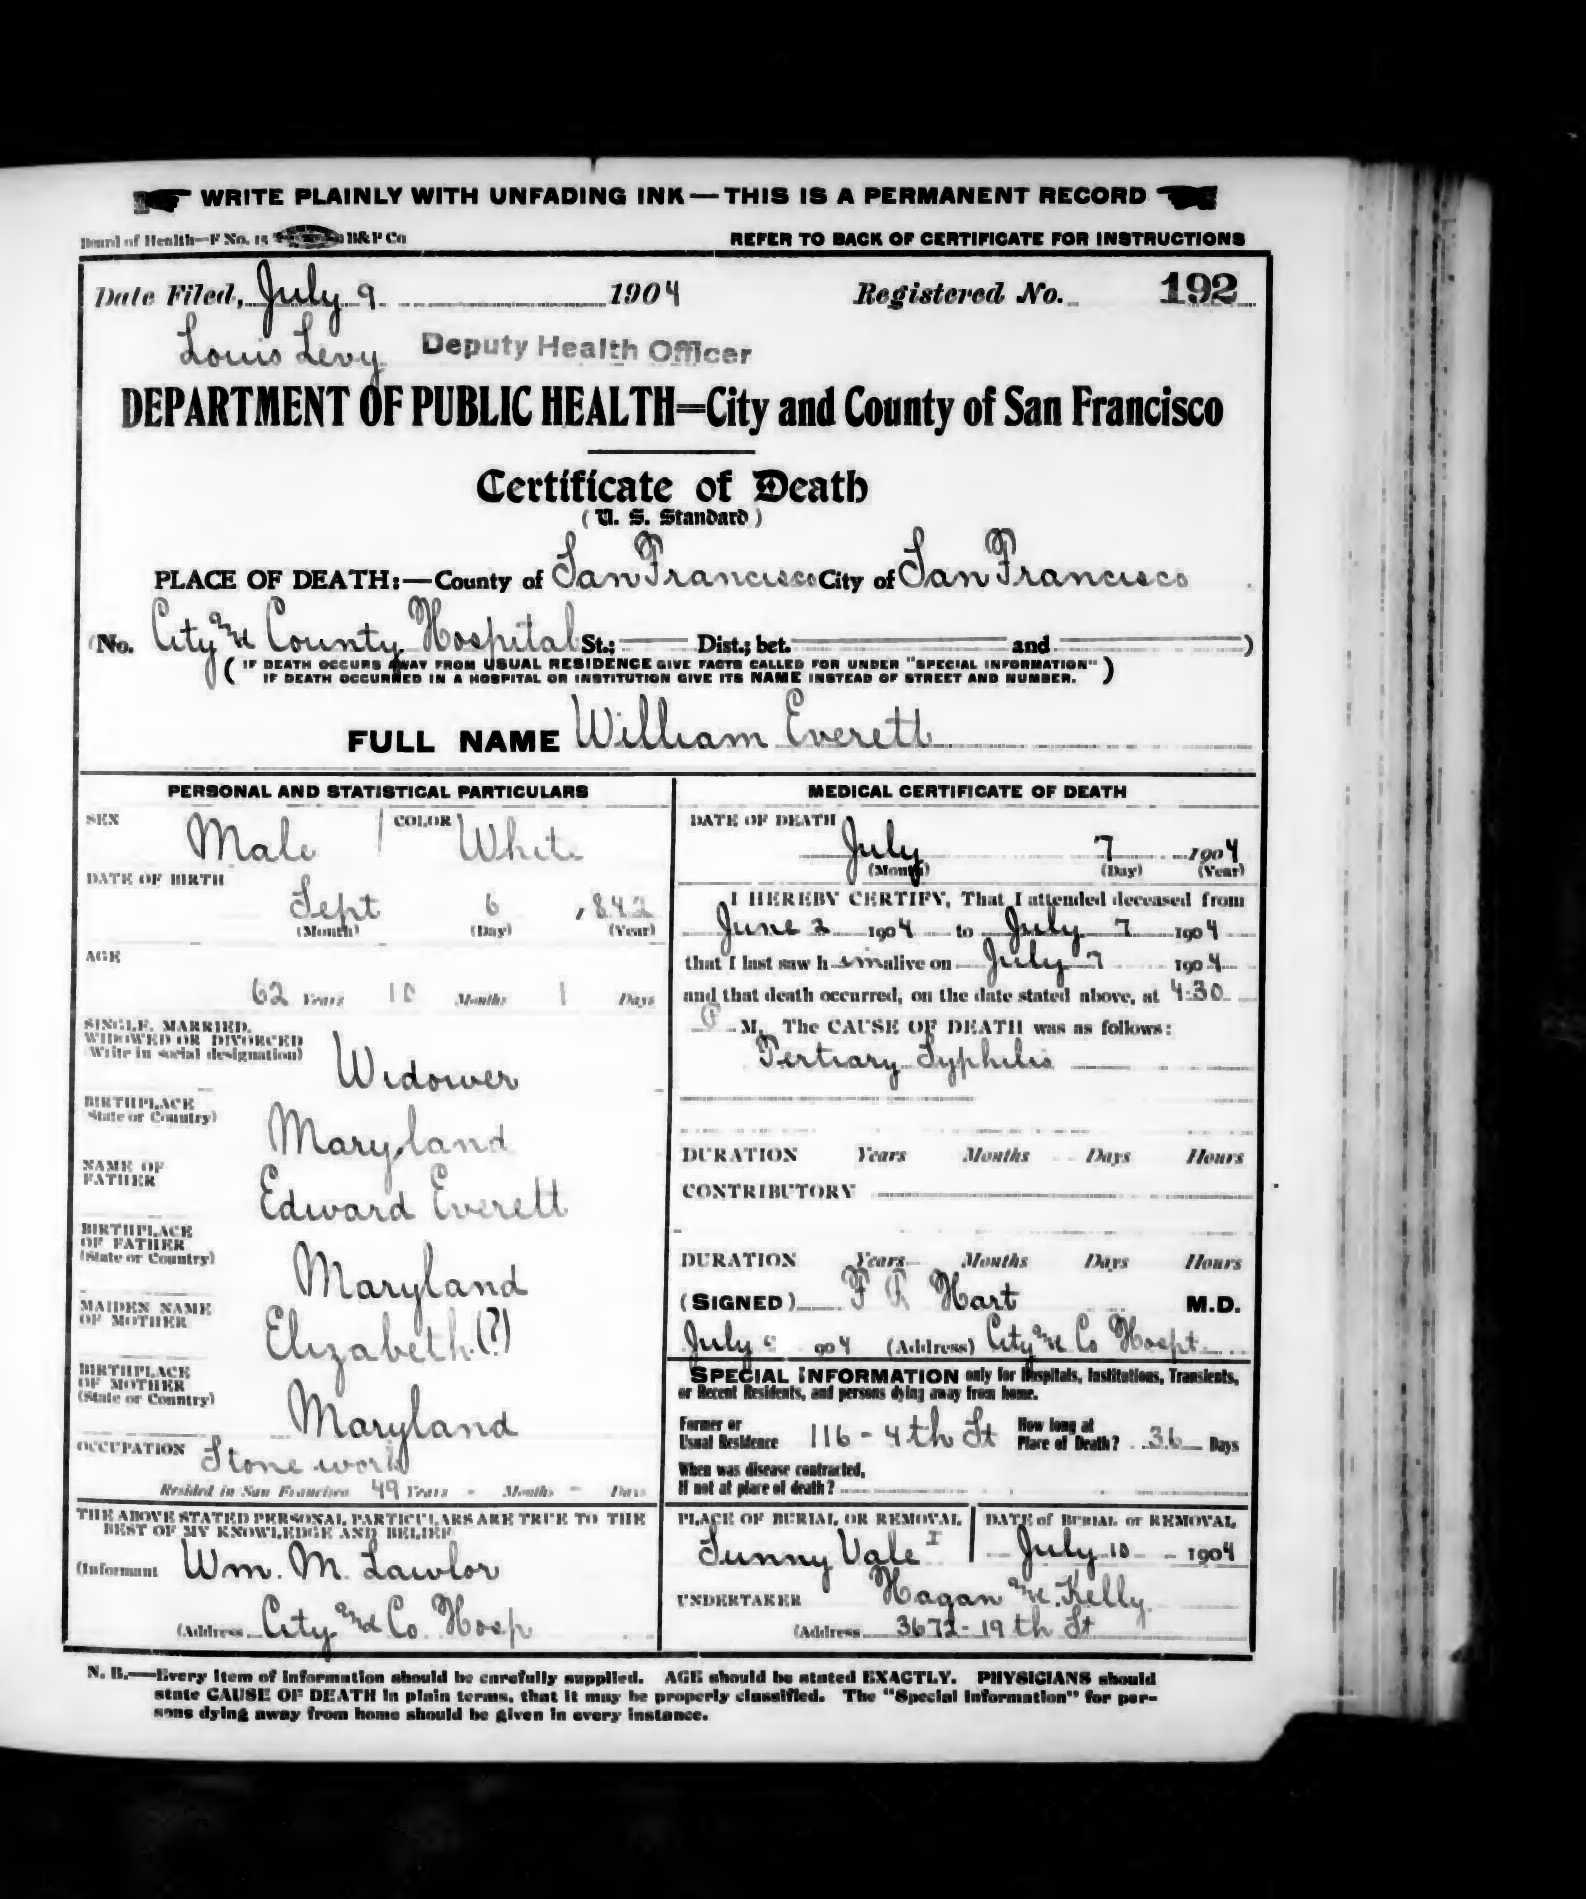 WRITE PLAINLY WITH UNFADING INK — THIS IS A PERMANENT RECORD
Board of Health—F No. 15 H&P Co
REFER TO BACK OF CERTIFICATE FOR INSTRUCTIONS
Date Filed, July 9 1904 Registered No. 192
Louis Levy Deputy Health Officer
DEPARTMENT OF PUBLIC HEALTH=City and County of San Francisco
Certificate of Death
(U. S. Standard)
PLACE OF DEATH:—County of San Francisco City of San Francisco
(No. City and County Hospital St.; Dist.; bet. and )
(IF DEATH OCCURS AWAY FROM USUAL RESIDENCE GIVE FACTS CALLED FOR UNDER "SPECIAL INFORMATION"
IF DEATH OCCURRED IN A HOSPITAL OR INSTITUTION GIVE ITS NAME INSTEAD OF STREET AND NUMBER.)
FULL NAME William Everett
PERSONAL AND STATISTICAL PARTICULARS
SEX Male COLOR White
DATE OF BIRTH
Sept 6 , 842
(Month) (Day) (Year)
AGE
62 Years 10 Months 1 Days
SINGLE, MARRIED,
WIDOWED OR DIVORCED
(Write in social designation)
Widower
BIRTHPLACE
State or Country)
Maryland
NAME OF
FATHER
Edward Everett
BIRTHPLACE
OF FATHER
(State or Country)
Maryland
MAIDEN NAME
OF MOTHER
Elizabeth (?)
BIRTHPLACE
OF MOTHER
(State or Country)
Maryland
OCCUPATION Stone work
Resided in San Francisco 49 Years - Months - Days
THE ABOVE STATED PERSONAL PARTICULARS ARE TRUE TO THE
BEST OF MY KNOWLEDGE AND BELIEF
(Informant Wm. M. Lawlor
(Address City and Co. Hosp
MEDICAL CERTIFICATE OF DEATH
DATE OF DEATH
July 7 1904
(Month) (Day) (Year)
I HEREBY CERTIFY, That I attended deceased from
June 2 1904 to July 7 1904
that I last saw h im alive on July 7 1904
and that death occurred, on the date stated above, at 4.30
P M. The CAUSE OF DEATH was as follows:
Tertiary Syphilis
DURATION Years Months Days Hours
CONTRIBUTORY
DURATION Years Months Days Hours
(SIGNED) F Hart M.D.
July 904 (Address) City and Co Hospt.
SPECIAL INFORMATION only for Hospitals, Institutions, Transients,
or Recent Residents, and persons dying away from home.
Former or
Usual Residence 116 - 4th St How long at
Place of Death? 36 Days
When was disease contracted,
If not at place of death?
PLACE OF BURIAL OR REMOVAL DATE of BURIAL or REMOVAL
Sunny Vale I July 10 1904
UNDERTAKER Hagan and Kelly
(Address 3672 - 19th St
N. B.—Every item of information should be carefully supplied. AGE should be stated EXACTLY. PHYSICIANS should
state CAUSE OF DEATH in plain terms, that it may be properly classified. The "Special Information" for per-
sons dying away from home should be given in every instance.